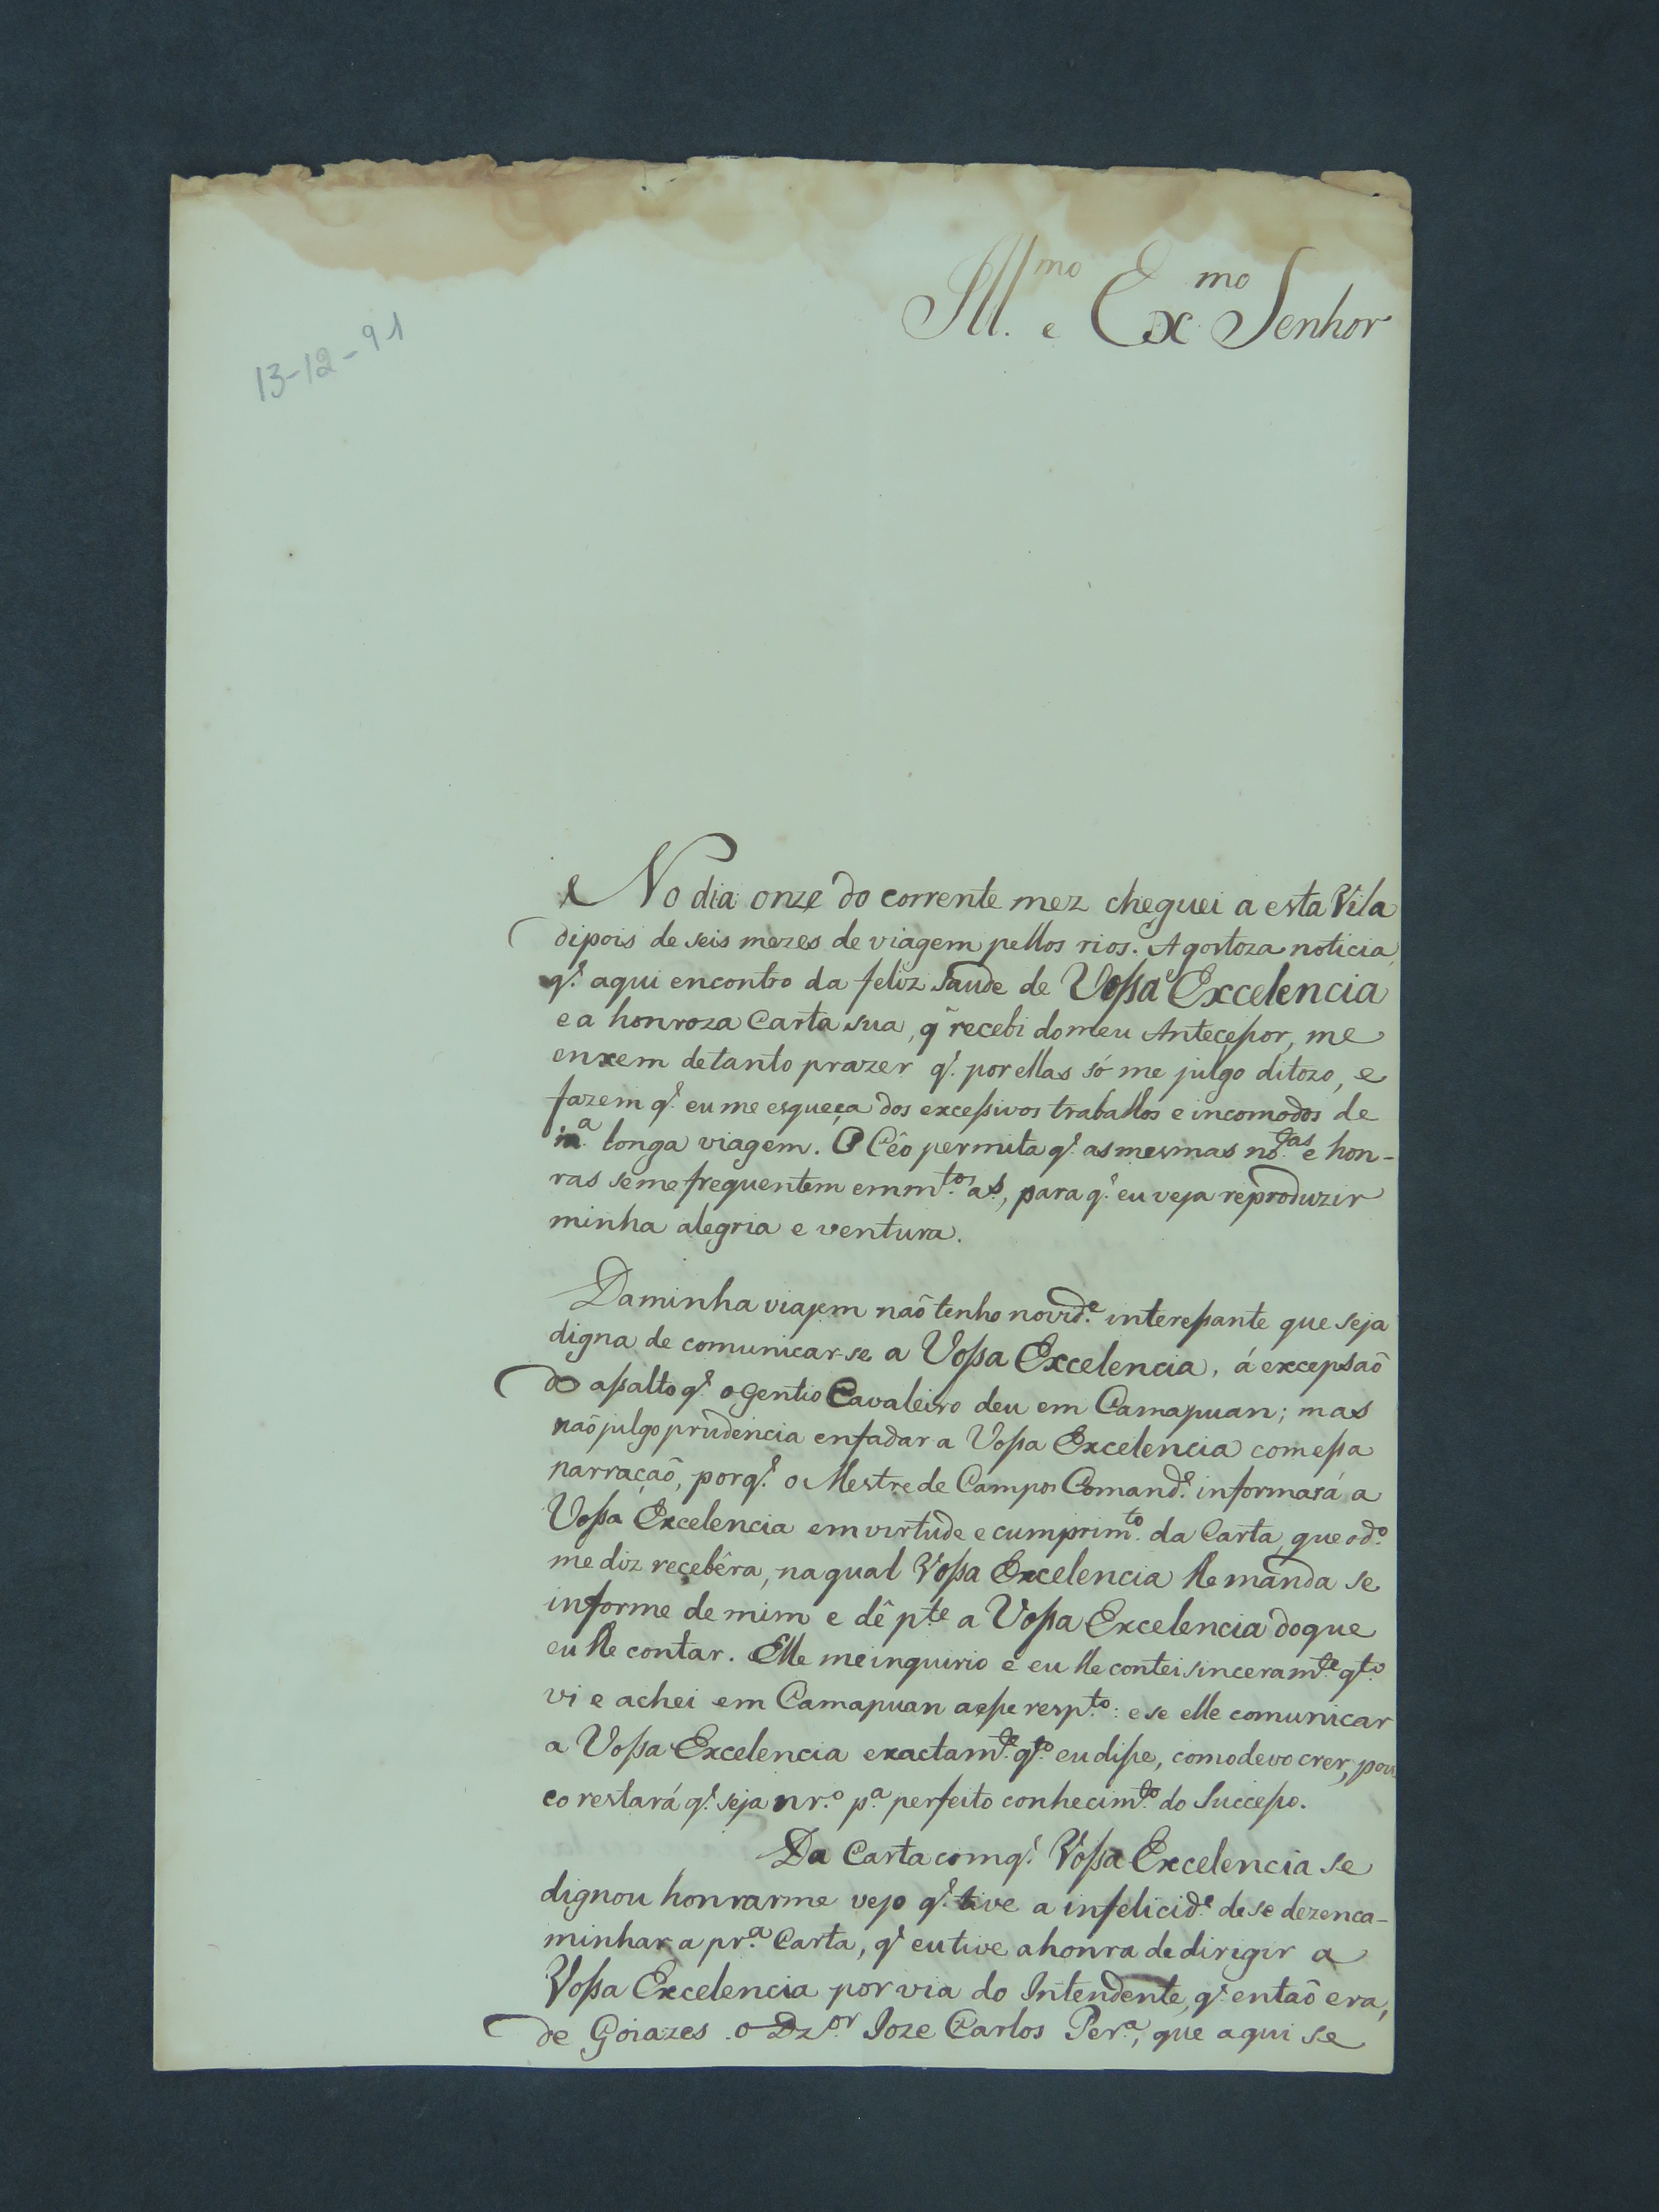 Ill.mo e Ex.mo Senhor
13-12-91
No dia onze do corrente mez cheguei a esta Vila
dipois de seis mezes de viagem pellos rios. A gostoza noticia,
q.e aqui encontro da feliz saude de Vossa Excelencia
e a honroza Carta sua, q̃ recebi do meu Antecessor, me
enxem de tanto prazer q.e por ellas só me julgo ditozo, e
fazem q.e eu me esqueça dos excessivos trabalhos e incomodos de
m.a longa viagem. O Cêo permita q.e as mesmas no.as e hon-
ras se me frequentem em m.tos a.s, para q.e eu veja reproduzir
minha alegria e ventura.
Da minha viajem naõ tenho novid.e interessante que seja
digna de comunicar-se a Vossa Excelencia, á excepsaõ
do assalto q.e o Gentio Cavaleiro deu em Camapuan; mas
naõ julgo prudencia enfadar a Vossa Excelencia com essa
narraçaõ, porq.e o Mestre de Campo Comand.e informará a
Vossa Excelencia em virtude e cumprim.to da Carta, que o d.o
me diz recebêra, na qual Vossa Excelencia lhe manda se
informe de mim e dê p.te a Vossa Excelencia do que
eu lhe contar. Elle me inquirio e eu lhe contei sinceram.te q.to
vi e achei em Camapuan a esse resp.to: e se elle comunicar
a Vossa Excelencia exactam.te q.to eu disse, como devo crer, pou
co restará q.e seja nr.o p.a perfeito conhecim.to do Successo.
Da Carta com q.e Vossa Excelencia se
dignou honrarme vejo q.e tive a infelicid.e de se dezenca-
minhar a pr.a Carta, q.e eu tive a honra de dirigir a
Vossa Excelencia por via do Intendente, q.e entaõ era,
de Goiazes o Dz.or Joze Carlos Per.a, que aqui se